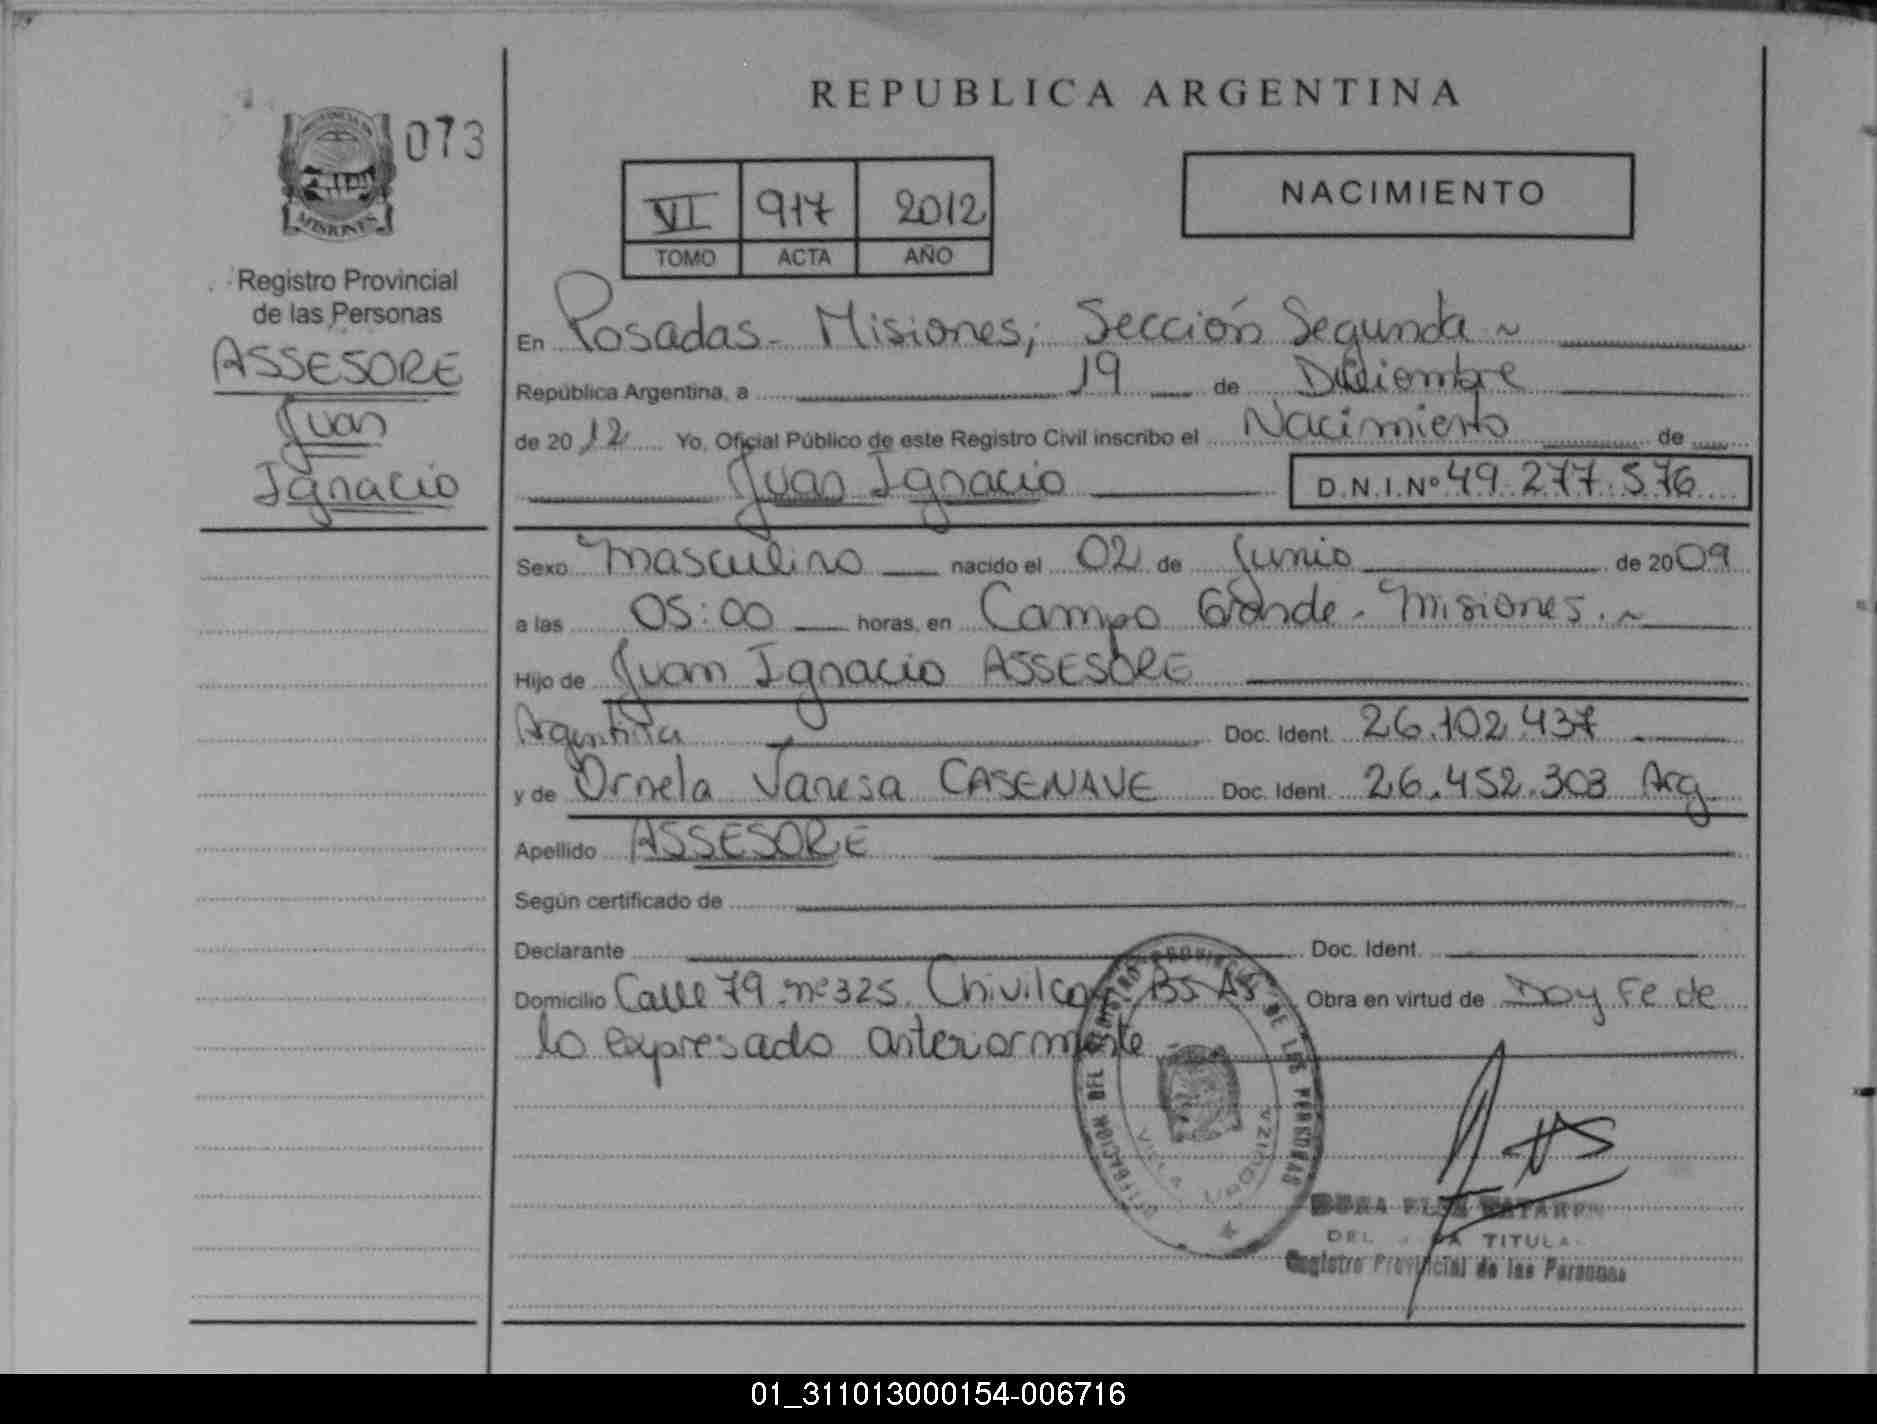 REPUBLICA ARGENTINA
PROVINCIA DE
MISIONES
073
Registro Provincial
de las Personas
ASSESORE
Juan
Ignacio
VI 917 2012
TOMO ACTA AÑO
NACIMIENTO
En Posadas - Misiones; Sección Segunda ~
República Argentina, a 19 de Diciembre
de 20 12 Yo, Oficial Público de este Registro Civil inscribo el Nacimiento de
Juan Ignacio D.N.I.Nº 49.277.576
Sexo Masculino nacido el 02 de Junio de 2009
a las 05:00 horas, en Campo Grande - Misiones. ~
Hijo de Juan Ignacio ASSESORE
Argentina Doc. Ident. 26.102.437
y de Ornela Vanesa CASENAVE Doc. Ident. 26.452.303 Arg
Apellido ASSESORE
Según certificado de
Declarante Doc. Ident.
Domicilio Calle 79 nº 325. Chivilcoy Bs As Obra en virtud de Doy Fe de
lo expresado anteriormente
DELEGACION DEL REGISTRO PROVINCIAL DE LAS PERSONAS
VILLA URQUIZA
ELSA
TITULAR
Registro Provincial de las Personas
01_311013000154-006716